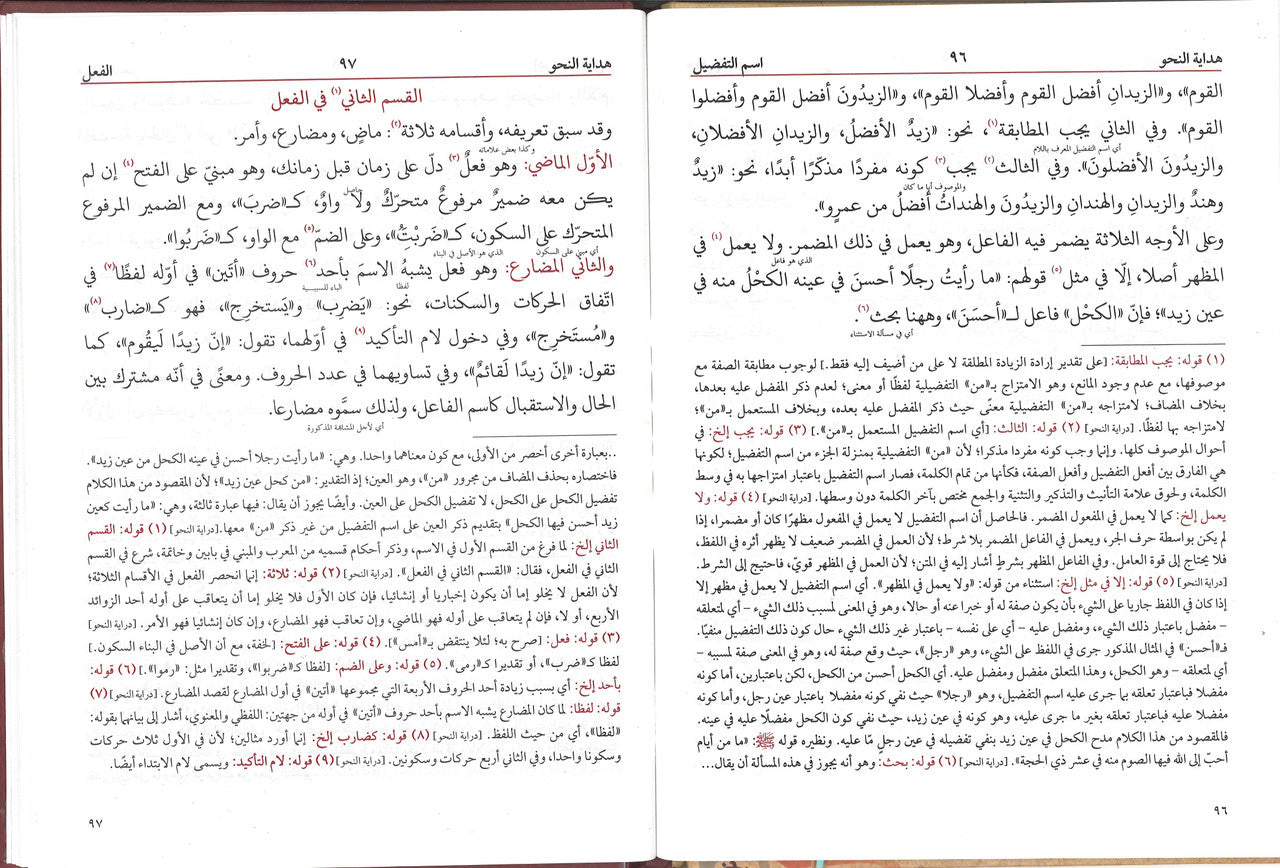 هداية النحو ٩٦ اسم التفضيل
القوم»، و«الزيدانِ أفضل القوم وأفضلا القوم»، و«الزيدُونَ أفضل القوم وأفضلوا
القوم». وفي الثاني يجب المطابقة(١)، نحو: «زيدٌ الأفضلُ، والزيدانِ الأفضلانِ،
أي اسم التفضيل المعرف باللام
والزيدُونَ الأفضلونَ». وفي الثالث(٢) يجب(٣) كونه مفردا مذكّرا أبدًا، نحو: «زيدٌ
والموصوف أيا ما كان
وهندٌ والزيدانِ والهندانِ والزيدُونَ والهنداتُ أفضلُ من عمرٍو».
وعلى الأوجه الثلاثة يضمر فيه الفاعل، وهو يعمل في ذلك المضمر. ولا يعمل(٤) في
الذي هو فاعل
المظهر أصلا، إلّا في مثل(٥) قولهم: «ما رأيتُ رجلًا أحسنَ في عينه الكَحْلُ منه في
عين زيد»؛ فإنّ «الكحْل» فاعل لـ«أحسَنَ»، وههنا بحث(٦).
أي في مسألة الاستثناء
(١) قوله: يجب المطابقة: [على تقدير إرادة الزيادة المطلقة لا على من أضيف إليه فقط.] لوجوب مطابقة الصفة مع
موصوفها، مع عدم وجود المانع، وهو الامتزاج بـ«من» التفضيلية لفظًا أو معنى؛ لعدم ذكر المفضل عليه بعدها،
بخلاف المضاف؛ لامتزاجه بـ«من» التفضيلية معنًى حيث ذكر المفضل عليه بعده، وبخلاف المستعمل بـ«من»؛
لامتزاجه بها لفظًا. [دراية النحو] (٢) قوله: الثالث: [أي اسم التفضيل المستعمل بـ«من».] (٣) قوله: يجب إلخ: في
أحوال الموصوف كلها. وإنما وجب كونه مفردا مذكرا؛ لأن «من» التفضيلية بمنزلة الجزء من اسم التفضيل؛ لكونها
هي الفارق بين أفعل التفضيل وأفعل الصفة، فكأنها من تمام الكلمة، فصار اسم التفضيل باعتبار امتزاجها به في وسط
الكلمة، ولحوق علامة التأنيث والتذكير والتثنية والجمع مختص بآخر الكلمة دون وسطها. [دراية النحو] (٤) قوله: ولا
يعمل إلخ: كما لا يعمل في المفعول المضمر. فالحاصل أن اسم التفضيل لا يعمل في المفعول مظهرًا كان أو مضمرا، إذا
لم يكن بواسطة حرف الجر، ويعمل في الفاعل المضمر بلا شرط؛ لأن العمل في المضمر ضعيف لا يظهر أثره في اللفظ،
فلا يحتاج إلى قوة العامل. وفي الفاعل المظهر بشرطٍ أشار إليه في المتن؛ لأن العمل في المظهر قويّ، فاحتيج إلى الشرط.
[دراية النحو] (٥) قوله: إلا في مثل إلخ: استثناء من قوله: «ولا يعمل في المظهر». أي اسم التفضيل لا يعمل في مظهر إلا
إذا كان في اللفظ جاريا على الشيء بأن يكون صفة له أو خبرا عنه أو حالا، وهو في المعنى لمسبب ذلك الشيء – أي لمتعلقه
– مفضل باعتبار ذلك الشيء، ومفضل عليه – أي على نفسه – باعتبار غير ذلك الشيء حال كون ذلك التفضيل منفيًا.
فـ«أحسن» في المثال المذكور جرى في اللفظ على الشيء، وهو «رجل»، حيث وقع صفة له، وهو في المعنى صفة لمسببه –
أي لمتعلقه – وهو الكحل، وهذا المتعلق مفضل ومفضل عليه. أي الكحل أحسن من الكحل، لكن باعتبارين، أما كونه
مفضلا فباعتبار تعلقه بما جرى عليه اسم التفضيل، وهو «رجلا» حيث نفي كونه مفضلا باعتبار عين رجل، وأما كونه
مفضلا عليه فباعتبار تعلقه بغير ما جرى عليه، وهو كونه في عين زيد، حيث نفي كون الكحل مفضلًا عليه في عينه.
فالمقصود من هذا الكلام مدح الكحل في عين زيد بنفي تفضيله في عين رجلٍ مّا عليه. ونظيره قوله ﷺ: «ما من أيام
أحبّ إلى الله فيها الصوم منه في عشر ذي الحجة». [دراية النحو] (٦) قوله: بحث: وهو أنه يجوز في هذه المسألة أن يقال...
٩٦
هداية النحو ٩٧ الفعل
القسم الثاني(١) في الفعل
وقد سبق تعريفه، وأقسامه ثلاثة(٢): ماضٍ، ومضارع، وأمر.
وكذا بعض علاماته
الأوّل الماضي: وهو فعلٌ(٣) دلّ على زمان قبل زمانك، وهو مبنيّ على الفتح(٤) إن لم
يكن معه ضميرٌ مرفوعٌ متحركٌ ولا واوٌ، كـ«ضربَ»، ومع الضمير المرفوع
المتحرّك على السكون، كـ«ضَرَبْتُ»، وعلى الضمّ(٥) مع الواو، كـ«ضَرَبُوا».
أي مبني على السكون الذي هو الأصل في البناء
والثاني المضارع: وهو فعل يشبهُ الاسمَ بأحد(٦) حروف «أتَين» في أوّله لفظًا(٧) في
لفظا الباء للسببية
اتّفاق الحركات والسكنات، نحو: «يَضرِب» و«يَستخرِج»، فهو كـ«ضارب(٨)»
و«مُستَخرِج»، وفي دخول لام التأكيد(٩) في أوّلهما، تقول: «إنّ زيدًا لَيقُوم»، كما
تقول: «إنّ زيدًا لَقائمٌ»، وفي تساويهما في عدد الحروف. ومعنًى في أنّه مشترك بين
الحال والاستقبال كاسم الفاعل، ولذلك سمَّوه مضارعا.
أي لأجل المشابهة المذكورة
..بعبارة أخرى أخصر من الأولى، مع كون معناهما واحدا. وهي: «ما رأيت رجلا أحسن في عينه الكحل من عين زيد».
فاختصاره بحذف المضاف من مجرور «من»، وهو العين؛ إذ التقدير: «من كحل عين زيد»؛ لأن المقصود من هذا الكلام
تفضيل الكحل على الكحل، لا تفضيل الكحل على العين. وأيضًا يجوز أن يقال: فيها عبارة ثالثة، وهي: «ما رأيت كعين
زيد أحسن فيها الكحل» بتقديم ذكر العين على اسم التفضيل من غير ذكر «من» معها.[دراية النحو] (١) قوله: القسم
الثاني إلخ: لما فرغ من القسم الأول في الاسم، وذكر أحكام قسميه من المعرب والمبني في بابين وخاتمة، شرع في القسم
الثاني في الفعل، فقال: «القسم الثاني في الفعل». [دراية النحو] (٢) قوله: ثلاثة: إنما انحصر الفعل في الأقسام الثلاثة؛
لأن الفعل لا يخلو إما أن يكون إخباريا أو إنشائيا، فإن كان الأول فلا يخلو إما أن يتعاقب على أوله أحد الزوائد
الأربع، أو لا، فإن لم يتعاقب على أوله فهو الماضي، وإن تعاقب فهو المضارع، وإن كان إنشائيا فهو الأمر. [دراية النحو]
(٣) قوله: فعل: [صرح به؛ لئلا ينتقض بـ«أمس».] (٤) قوله: على الفتح: [لخفة، مع أن الأصل في البناء السكون.]
لفظا كـ«ضرب»، أو تقديرا كـ«رمى». (٥) قوله: وعلى الضم: [لفظا كـ«ضربوا»، وتقديرا مثل: «رموا».] (٦) قوله:
بأحد إلخ: أي بسبب زيادة أحد الحروف الأربعة التي مجموعها «أتين» في أول المضارع لقصد المضارع. [دراية النحو] (٧)
قوله: لفظا: لما كان المضارع يشبه الاسم بأحد حروف «أتين» في أوله من جهتين: اللفظي والمعنوي، أشار إلى بيانهما بقوله:
«لفظا»، أي من حيث اللفظ. [دراية النحو] (٨) قوله: كضارب إلخ: إنما أورد مثالين؛ لأن في الأول ثلاث حركات
وسكونا واحدا، وفي الثاني أربع حركات وسكونين. [دراية النحو] (٩) قوله: لام التأكيد: ويسمى لام الابتداء أيضًا.
٩٧